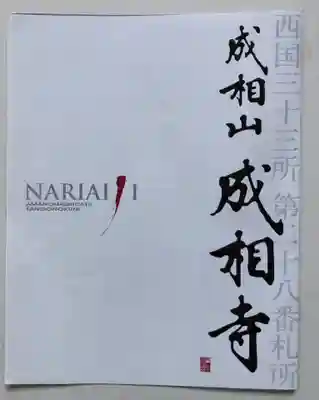 西国三十三所 第二十八番札所
成相山 成相寺
NARIAIJI